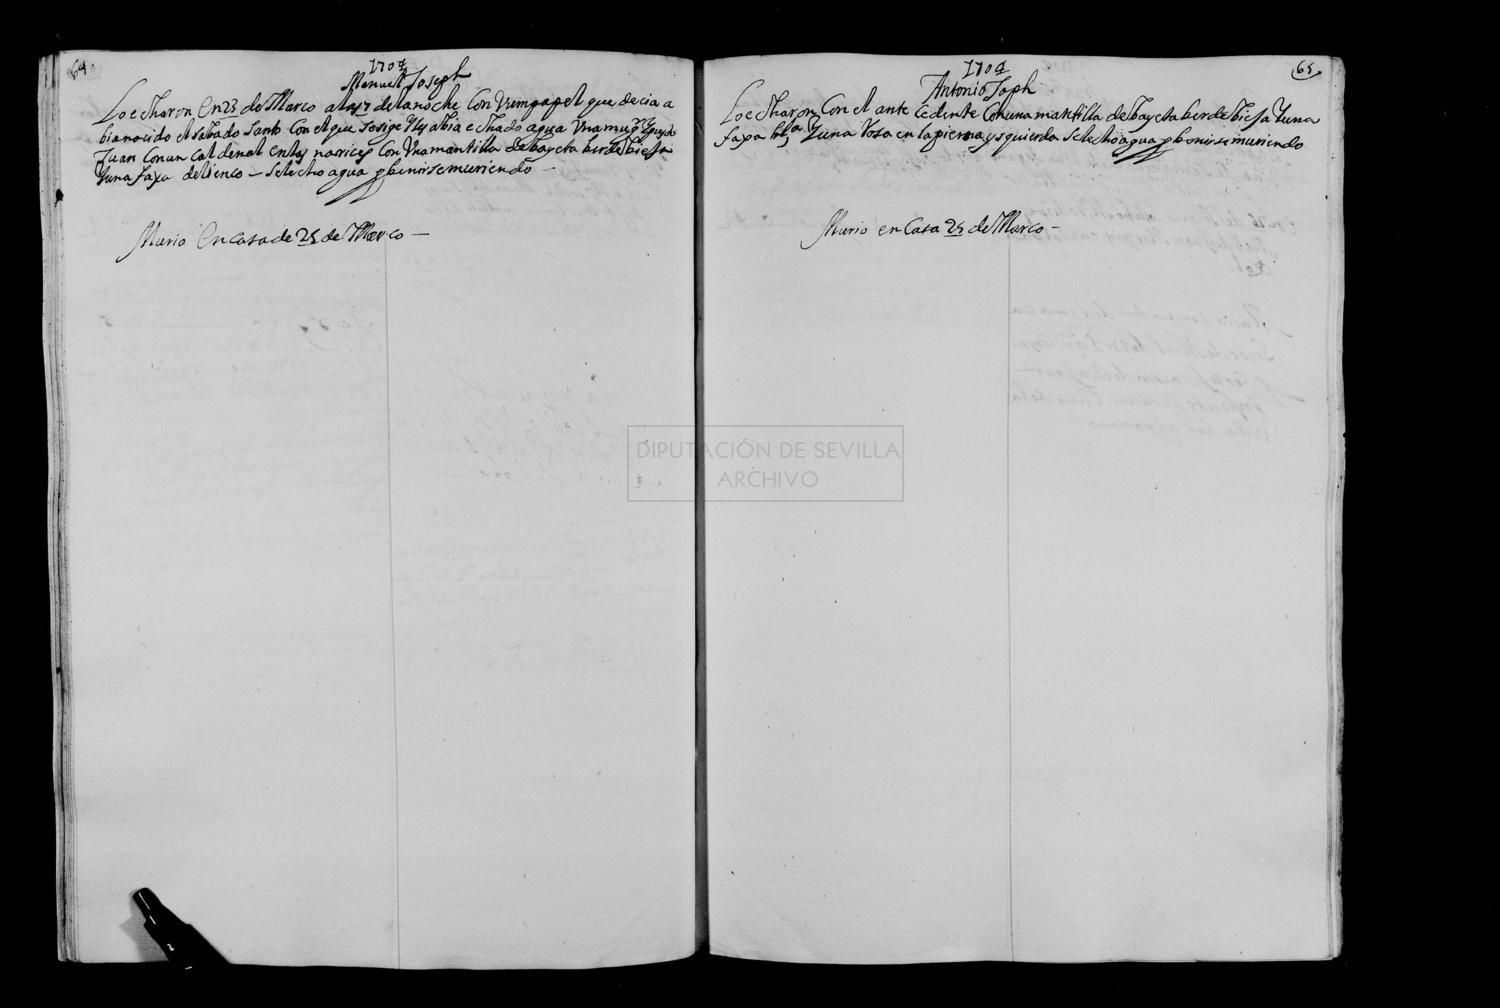 64
1704
Manuel Joseph
Lo echaron En 23 de Março a las 7 de la noche Con Un papel que decia a
bia nacido el sabado santo Con el que se sige Y les abia echado agua Una muger
Juan Con un cardenal en las narices Con Una mantilla de bayeta berde biexa
Y una faxa de lienço – se le echo agua por benirse muriendo –
Murio En Casa de 25 de Março –
65
1704
Antonio Joph
Lo echaron Con el antecedente Con una mantilla de bayeta berde biexa Y una
faxa Y una rosa en la pierna ysquierda se le echo agua por benirse muriendo
Murio en Casa 25 de Março –
DIPUTACIÓN DE SEVILLA
ARCHIVO